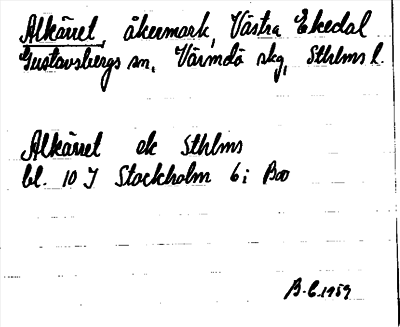 Alkärret, åkermark, Västra Ekedal
Gustavsbergs sn, Värmdö skg, Sthlms l.
Alkärret ek Sthlms
bl. 10 I Stockholm 6i Boo
B.C. 1959